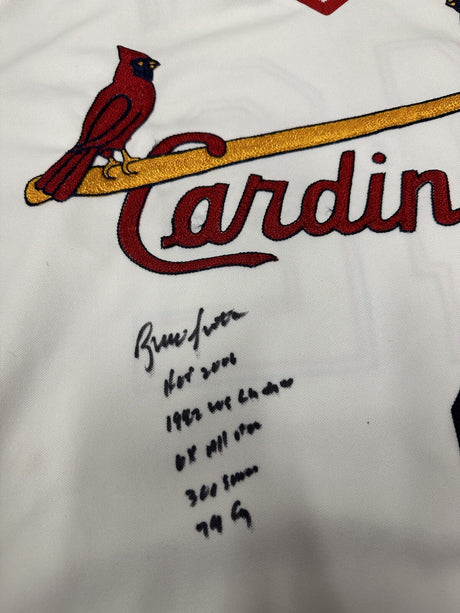 Cardin
Bruce Sutter
HOF 2006
1982 WS Champ
6X All Star
300 Saves
79 Cy